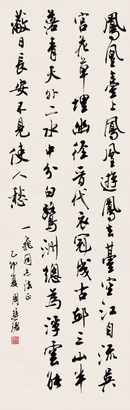 鳳凰臺上鳳凰遊鳳去臺空江自流吳
宮花草埋幽徑晉代衣冠成古邱三山半
落青天外二水中分白鷺洲總為浮雲能
蔽日長安不見使人愁 同志法正
乙卯夏周慧珺